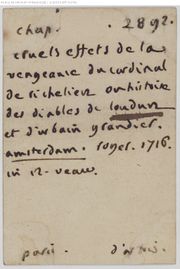 chap. 2892.
cruels effets de la
vengeance du cardinal
de richelieu ou histoire
des diables de loudun
et d'urbain grandier.
amsterdam. roger. 1716.
in 12 - veau.
paris. d'artois.